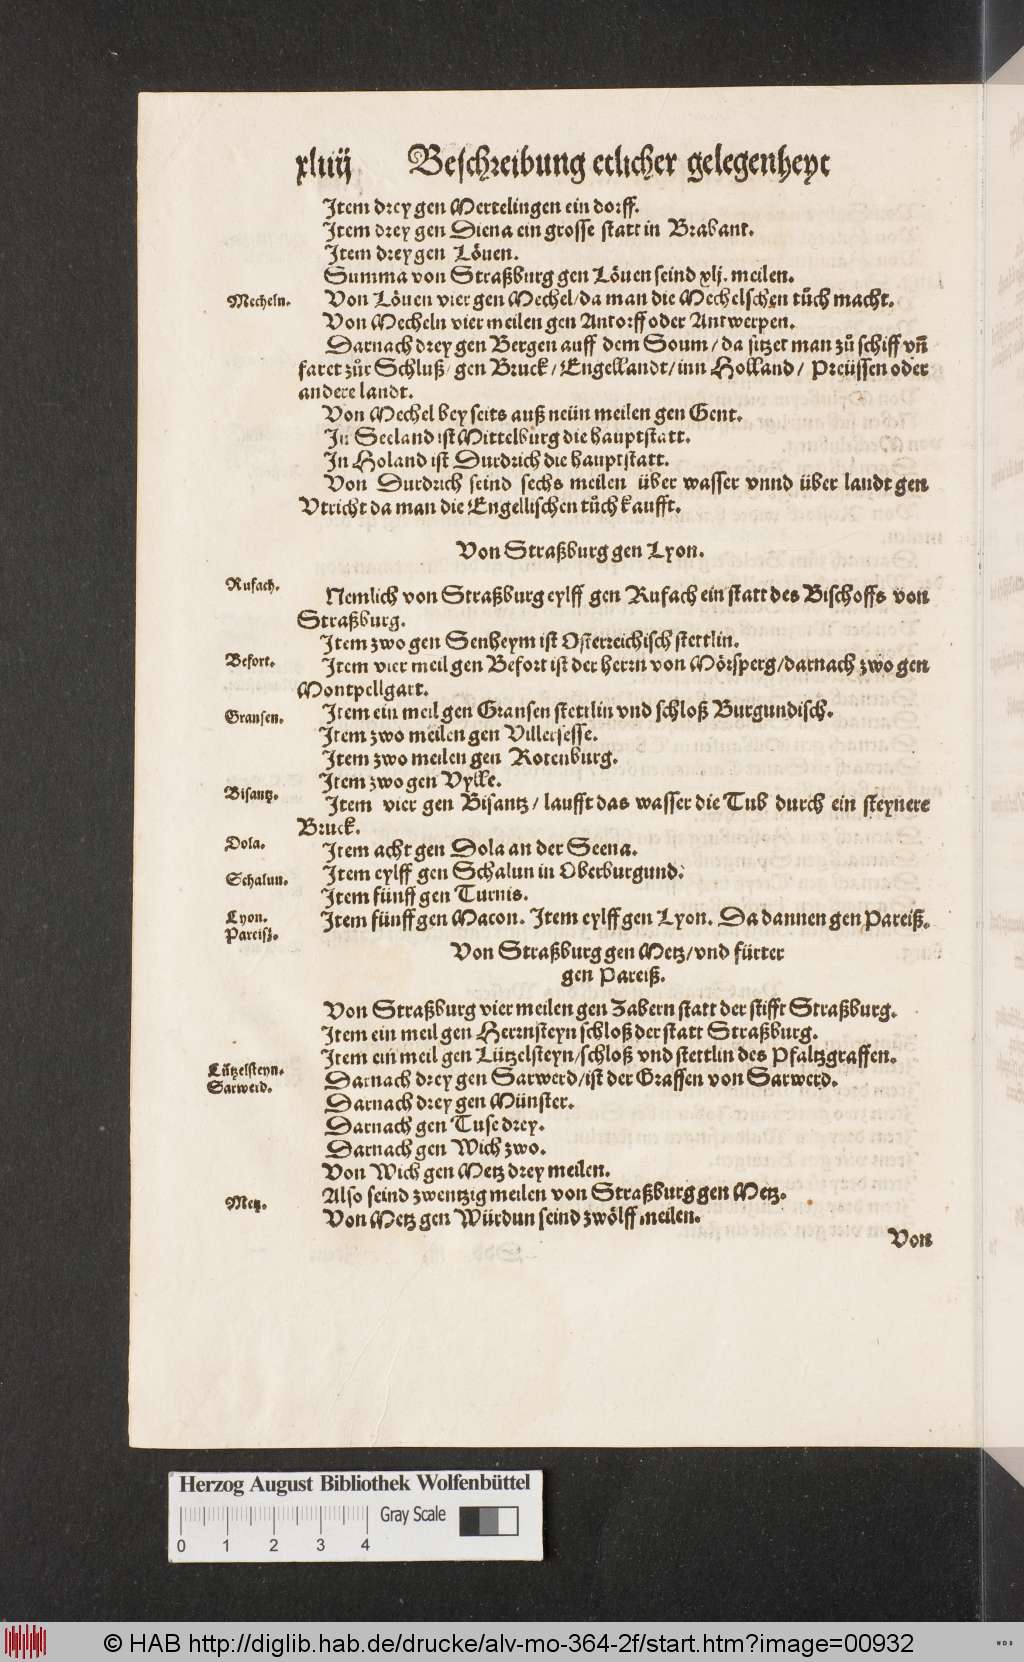 xliiij Beschreibung etlicher gelegenheyt
Item drey gen Mertelingen ein dorff.
Item drey gen Diena ein grosse statt in Brabant.
Item drey gen Löuen.
Summa von Straßburg gen Löuen seind xlj. meilen.
Mecheln.
Von Löuen vier gen Mechel/da man die Mechelschen tůch macht.
Von Mecheln vier meilen gen Antorff oder Antwerpen.
Darnach drey gen Bergen auff dem Soum/da sitzet man zů schiff vñ
faret zůr Schluß/gen Bruck/Engellandt/inn Holland/Preüssen oder
andere landt.
Von Mechel bey seits auß neün meilen gen Gent.
In Seeland ist Mittelburg die hauptstatt.
In Holand ist Durdrich die hauptstatt.
Von Durdrich seind sechs meilen über wasser vnnd über landt gen
Vtricht da man die Engellischen tůch kaufft.
Von Straßburg gen Lyon.
Rufach.
Nemlich von Straßburg eylff gen Rufach ein statt des Bischoffs von
Straßburg.
Item zwo gen Senheym ist Osterreichisch stettlin.
Befort.
Item vier meil gen Befort ist der herrn von Mörsperg/darnach zwo gen
Montpellgart.
Gransen.
Item ein meil gen Gransen stettlin vnd schloß Burgundisch.
Item zwo meilen gen Villersesse.
Item zwo meilen gen Rotenburg.
Item zwo gen Vylle.
Bisantz.
Item vier gen Bisantz/laufft das wasser die Tub durch ein steynere
Bruck.
Dola.
Item acht gen Dola an der Seena.
Schalun.
Item eylff gen Schalun in Oberburgund.
Item fünff gen Turnis.
Lyon.
Pareisz.
Item fünff gen Macon. Item eylff gen Lyon. Da dannen gen Pareiß.
Von Straßburg gen Metz/vnd fürter
gen Pareiß.
Von Straßburg vier meilen gen Zabern statt der stifft Straßburg.
Item ein meil gen Herrnsteyn schloß der statt Straßburg.
Item ein meil gen Lützelsteyn/schloß vnd stettlin des Pfaltzgraffen.
Lützelsteyn.
Sarwerd.
Darnach drey gen Sarwerd/ist der Graffen von Sarwerd.
Darnach drey gen Münster.
Darnach gen Tuse drey.
Darnach gen Wich zwo.
Von Wich gen Metz drey meilen.
Also seind zwentzig meilen von Straßburg gen Metz.
Metz.
Von Metz gen Würdun seind zwölff meilen.
Von
Herzog August Bibliothek Wolfenbüttel
Gray Scale
0 1 2 3 4
© HAB http://diglib.hab.de/drucke/alv-mo-364-2f/start.htm?image=00932